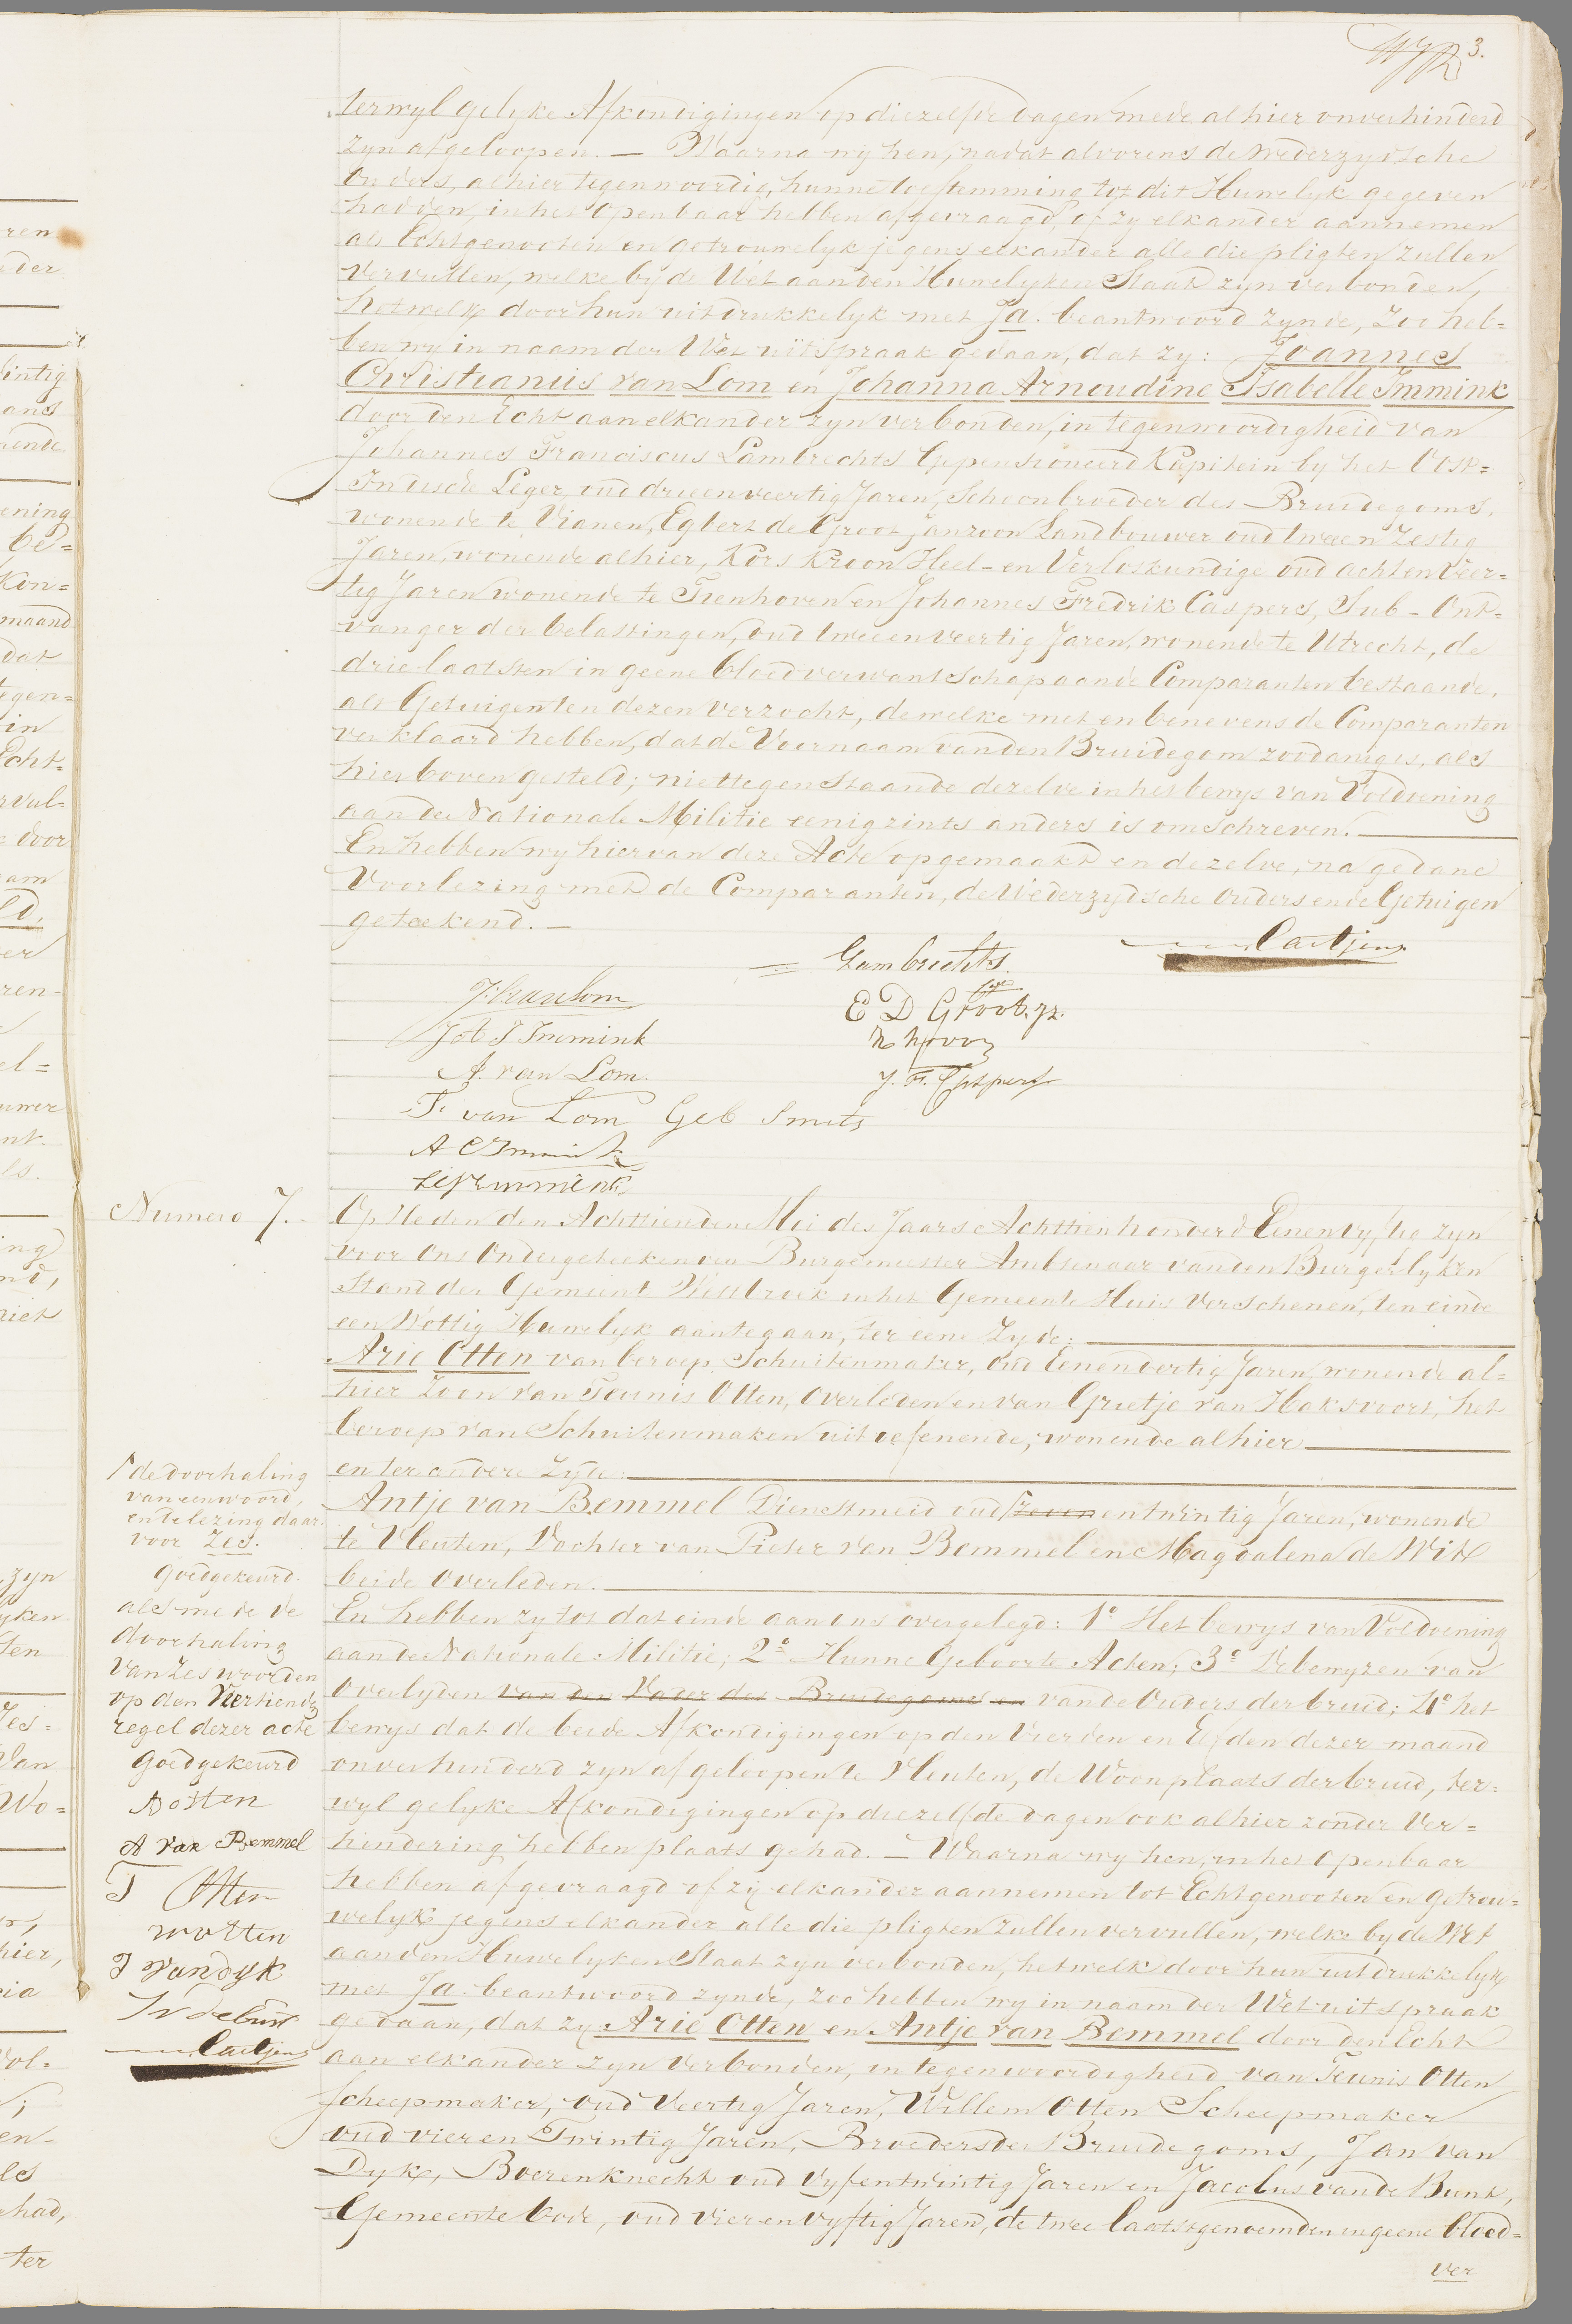 3.
terwyl gelyke Afkondigingen op diezelfde dagen mede alhier onverhinderd
zyn afgeloopen. — Waarna wy hen, nadat alvorens de wederzydsche
Ouders, alhier tegenwoordig, hunne toestemming tot dit Huwelyk gegeven
hadden, in het openbaar hebben afgevraagd, of zy elkander aannemen
als Echtgenooten en getrouwelyk jegens elkander alle die pligten zullen
vervullen, welke by de Wet aan den Huwelyken Staat zyn verbonden,
hetwelk door hun uitdrukkelyk met Ja. beantwoord zynde, zoo heb=
ben wy in naam der Wet uitspraak gedaan, dat zy: Joannes
Christianus van Lom en Johanna Arnoudina Isabelle Immink
door den Echt aan elkander zyn verbonden, in tegenwoordigheid van
Johannes Franciscus Lambrechts Gepensioneerd Kapitein by het Oost=
Indische Leger, oud drieenveertig Jaren, Schoonbroeder des Bruidegoms,
wonende te Vianen, Egbert de Groot Janzoon Landbouwer oud tweeen Zestig
Jaren, wonende alhier, Kors Kroon Heel- en Verloskundige oud achtenveer=
tig Jaren wonende te Tienhoven en Johannes Fredrik Caspers, Sub-Ont=
vanger der belastingen, oud tweeenveertig Jaren, wonende te Utrecht, de
drie laatsten in geene bloedverwantschap aan de Comparanten bestaande,
als Getuigen ten dezen verzocht, dewelke met en benevens de Comparanten
verklaard hebben, dat de Voornaam van den Bruidegom zoodanig is, als
hierboven gesteld; niettegenstaande dezelve in het bewys van Voldoening
aan de Nationale Militie eenigzints anders is omschreven.
En hebben wy hiervan deze Acte opgemaakt en dezelve, na gedane
Voorlezing met de Comparanten, de Wederzydsche Ouders en de Getuigen
geteekend. —
Lambrechts.
J C van Lom
E D Groot. Jz.
Joh I Immink
K Kroon
A. van Lom.
J. F. Caspers
F. van Lom Geb Smits
A C Immink
Numero 7.
Op Heden den Achttienden Mei des Jaars Achttienhonderd Eenenvyftig zyn
voor Ons Ondergeteekenden Burgemeester Ambtenaar van den Burgerlyken
Stand der Gemeente Westbroek in het Gemeente Huis verschenen, ten einde
een Wettig Huwelyk aantegaan, ter eene Zyde:
Arie Otten van beroep Schuitenmaker, oud Eenendertig Jaren, wonende al=
hier Zoon van Teunis Otten, Overleden en van Grietje van Haksvoort, het
beroep van Schuitenmaken uitoefenende, wonende alhier
en ter andere Zyde:
Antje van Bemmel Dienstmeid oud zeven entwintig Jaren, wonende
te Vleuten, Dochter van Pieter van Bemmel en Magdalena de Wit
beide Overleden.
En hebben zy tot dat einde aan ons overgelegd: 1º Het bewys van Voldoening
aan de Nationale Militie; 2º Hunne Geboorte Acten; 3º De bewyzen van
Overlyden van den Vader des Bruidegoms en van de Ouders der bruid; 4º het
bewys dat de beide Afkondigingen op den Vierden en Elfden dezer maand
onverhinderd zyn afgeloopen te Vleuten, de Woonplaats der bruid, ter=
wyl gelyke Afkondigingen op diezelfde dagen ook alhier zonder Ver=
hindering hebben plaats gehad. — Waarna wy hen, in het openbaar
hebben afgevraagd of zij elkander aannemen tot Echtgenooten en getrou=
welyk jegens elkander alle die pligten zullen vervullen, welke by de Wet
aan den Huwelyken Staat zyn verbonden, hetwelk door hun uitdrukkelyk
met Ja. beantwoord zynde, zoo hebben wy in naam der Wet uitspraak
gedaan, dat zy Arie Otten en Antje van Bemmel door den Echt
aan elkander zyn verbonden, in tegenwoordigheid van Teunis Otten
Scheepmaker, oud Veertig Jaren, Willem Otten Scheepmaker
oud vier en Twintig Jaren, Broeders des Bruidegoms, Jan van
Dyk, Boerenknecht oud Vyfentwintig Jaren en Jacobus van de Bunt,
Gemeente bode, oud Vierenvyftig Jaren, de twee laatstgenoemden in geene bloed=
ver
de doorhaling
van een woord,
en te lezing daar
voor zes.
goedgekeurd.
als mede de
doorhaling
van zes woorden
op den Veertiende
regel dezer acte
goedgekeurd
A Otten
A van Bemmel
T Otten
W Otten
J van Dyk